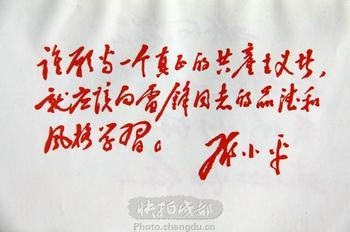 谁愿当一个真正的共產主义者，
就应该向雷锋同志的品德和
风格学習。
邓小平
快拍成都
Photo.chengdu.cn